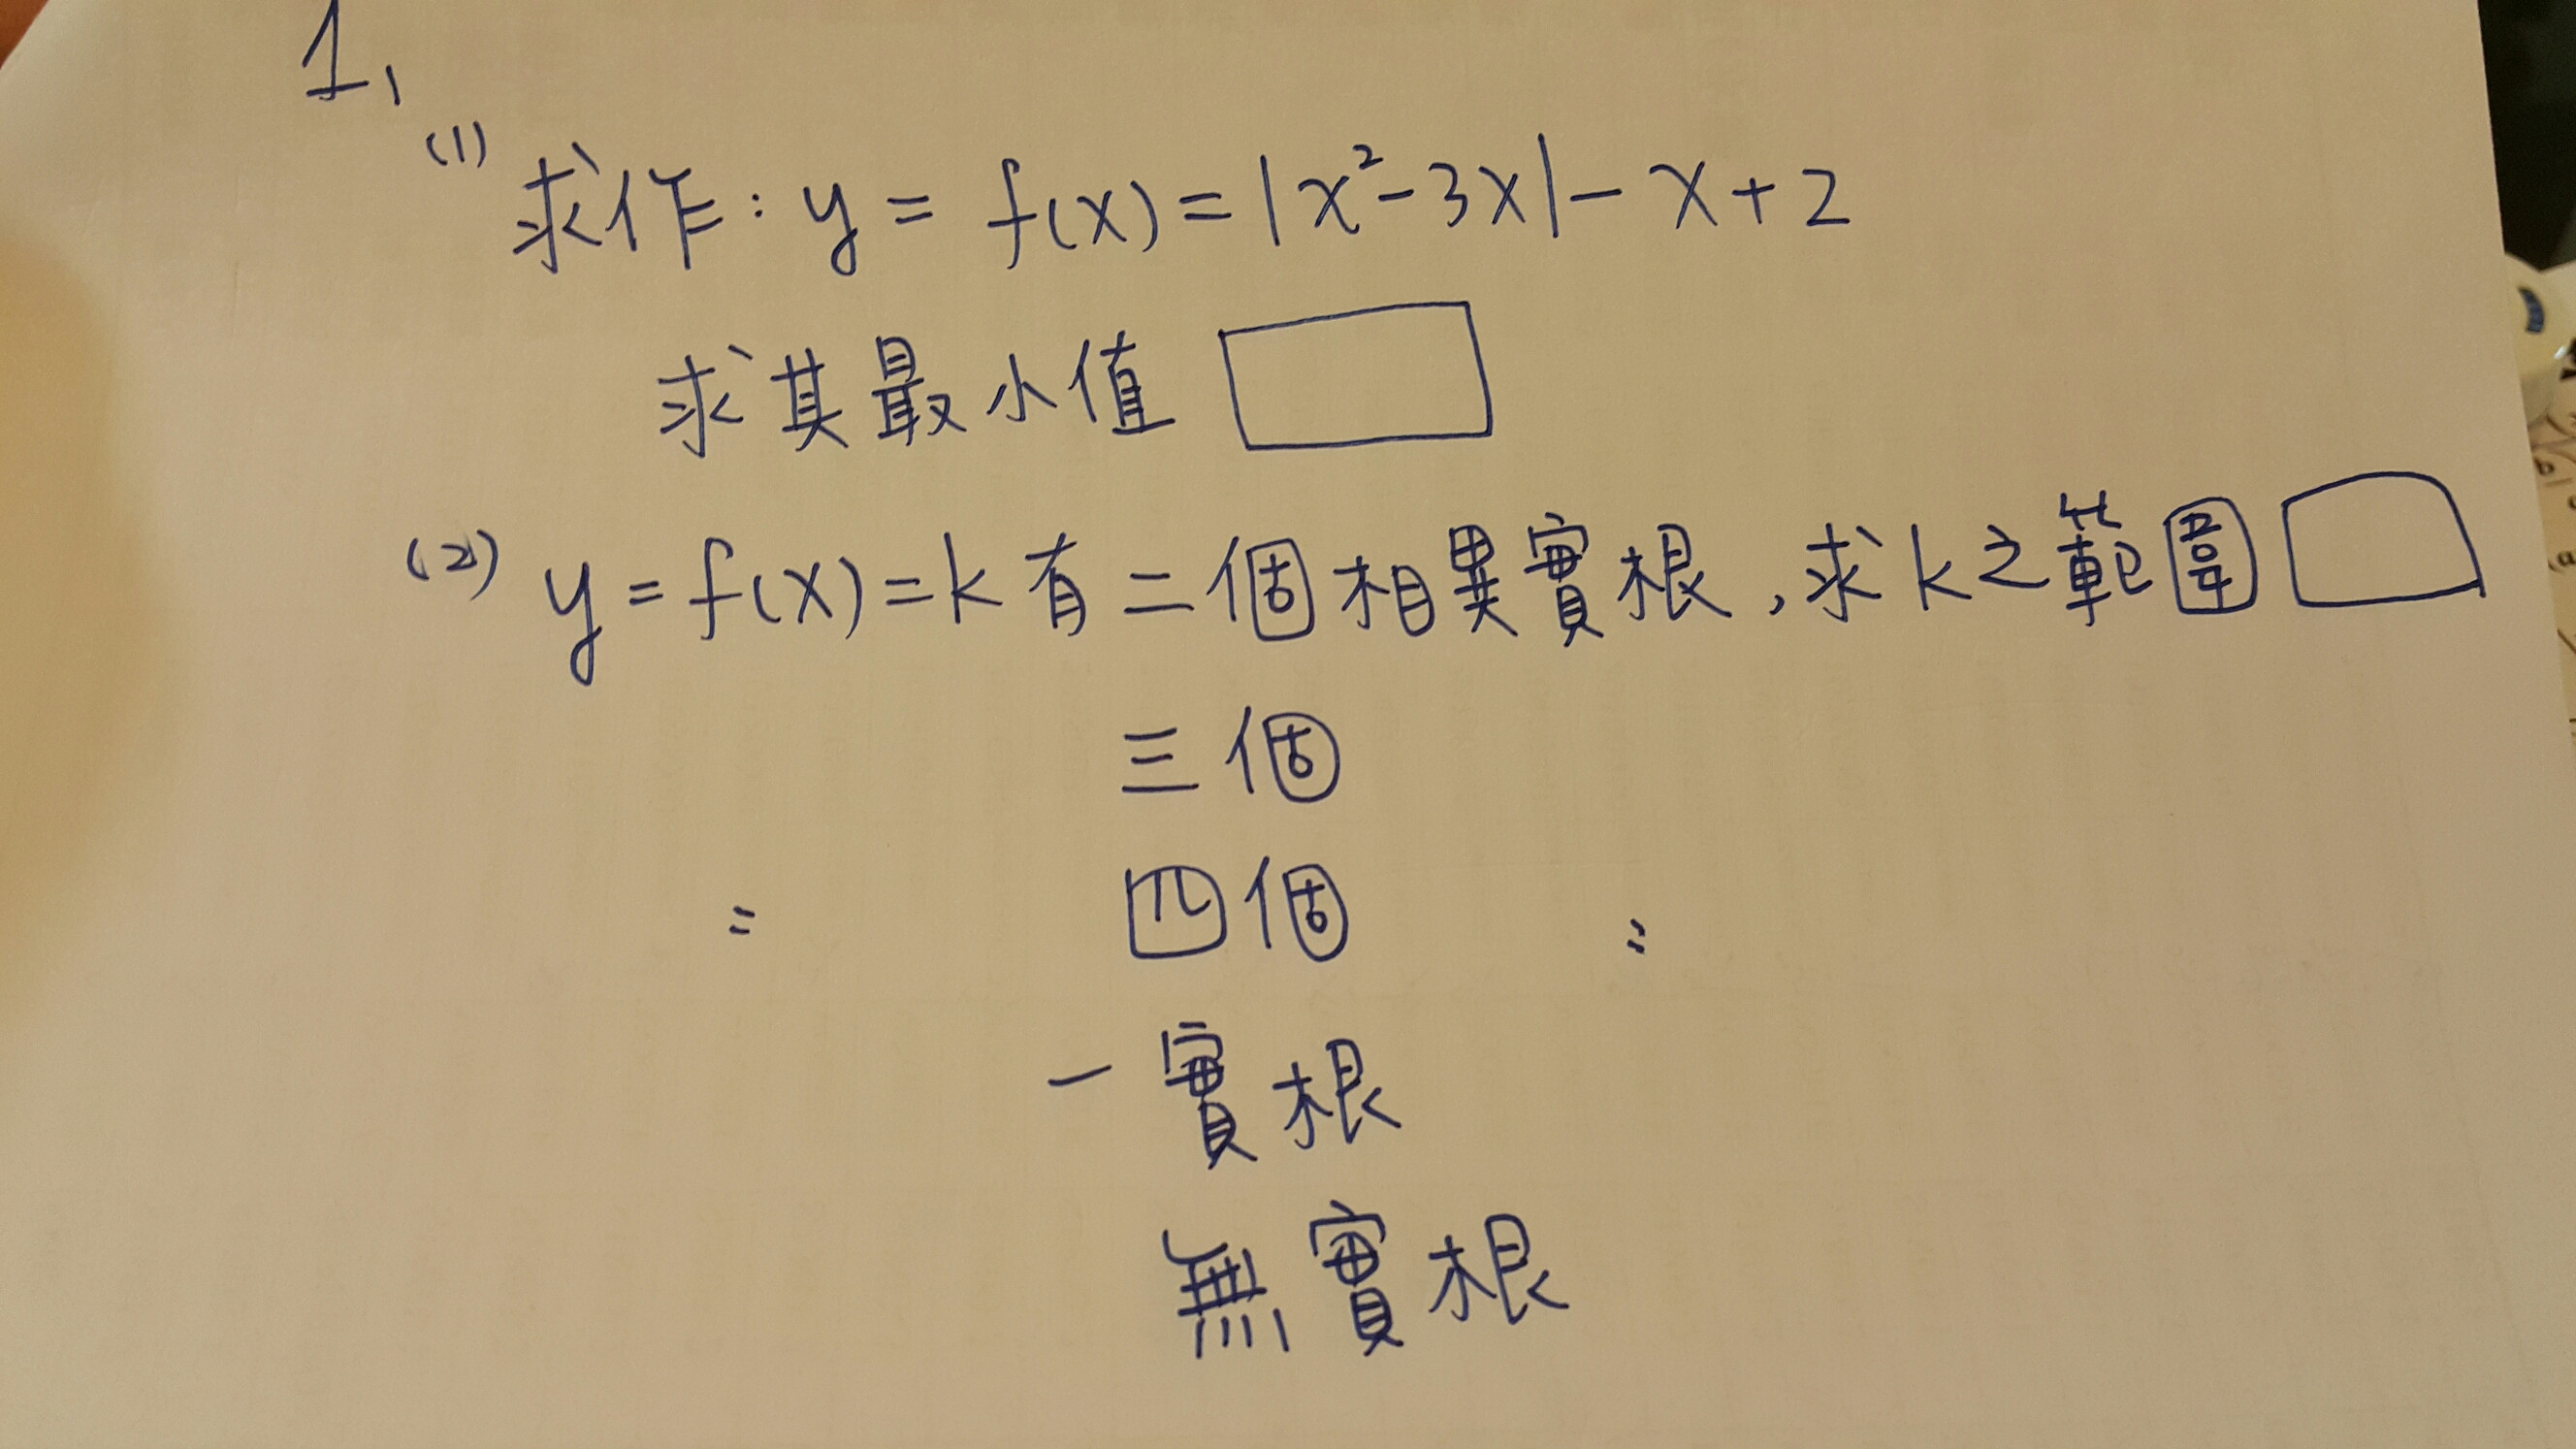 1.
(1) 求作：y = f(x) = |x²-3x| - x + 2
求其最小值
(2) y = f(x) = k 有二個相異實根，求k之範圍
三個
〃 四個 〃
一實根
無實根